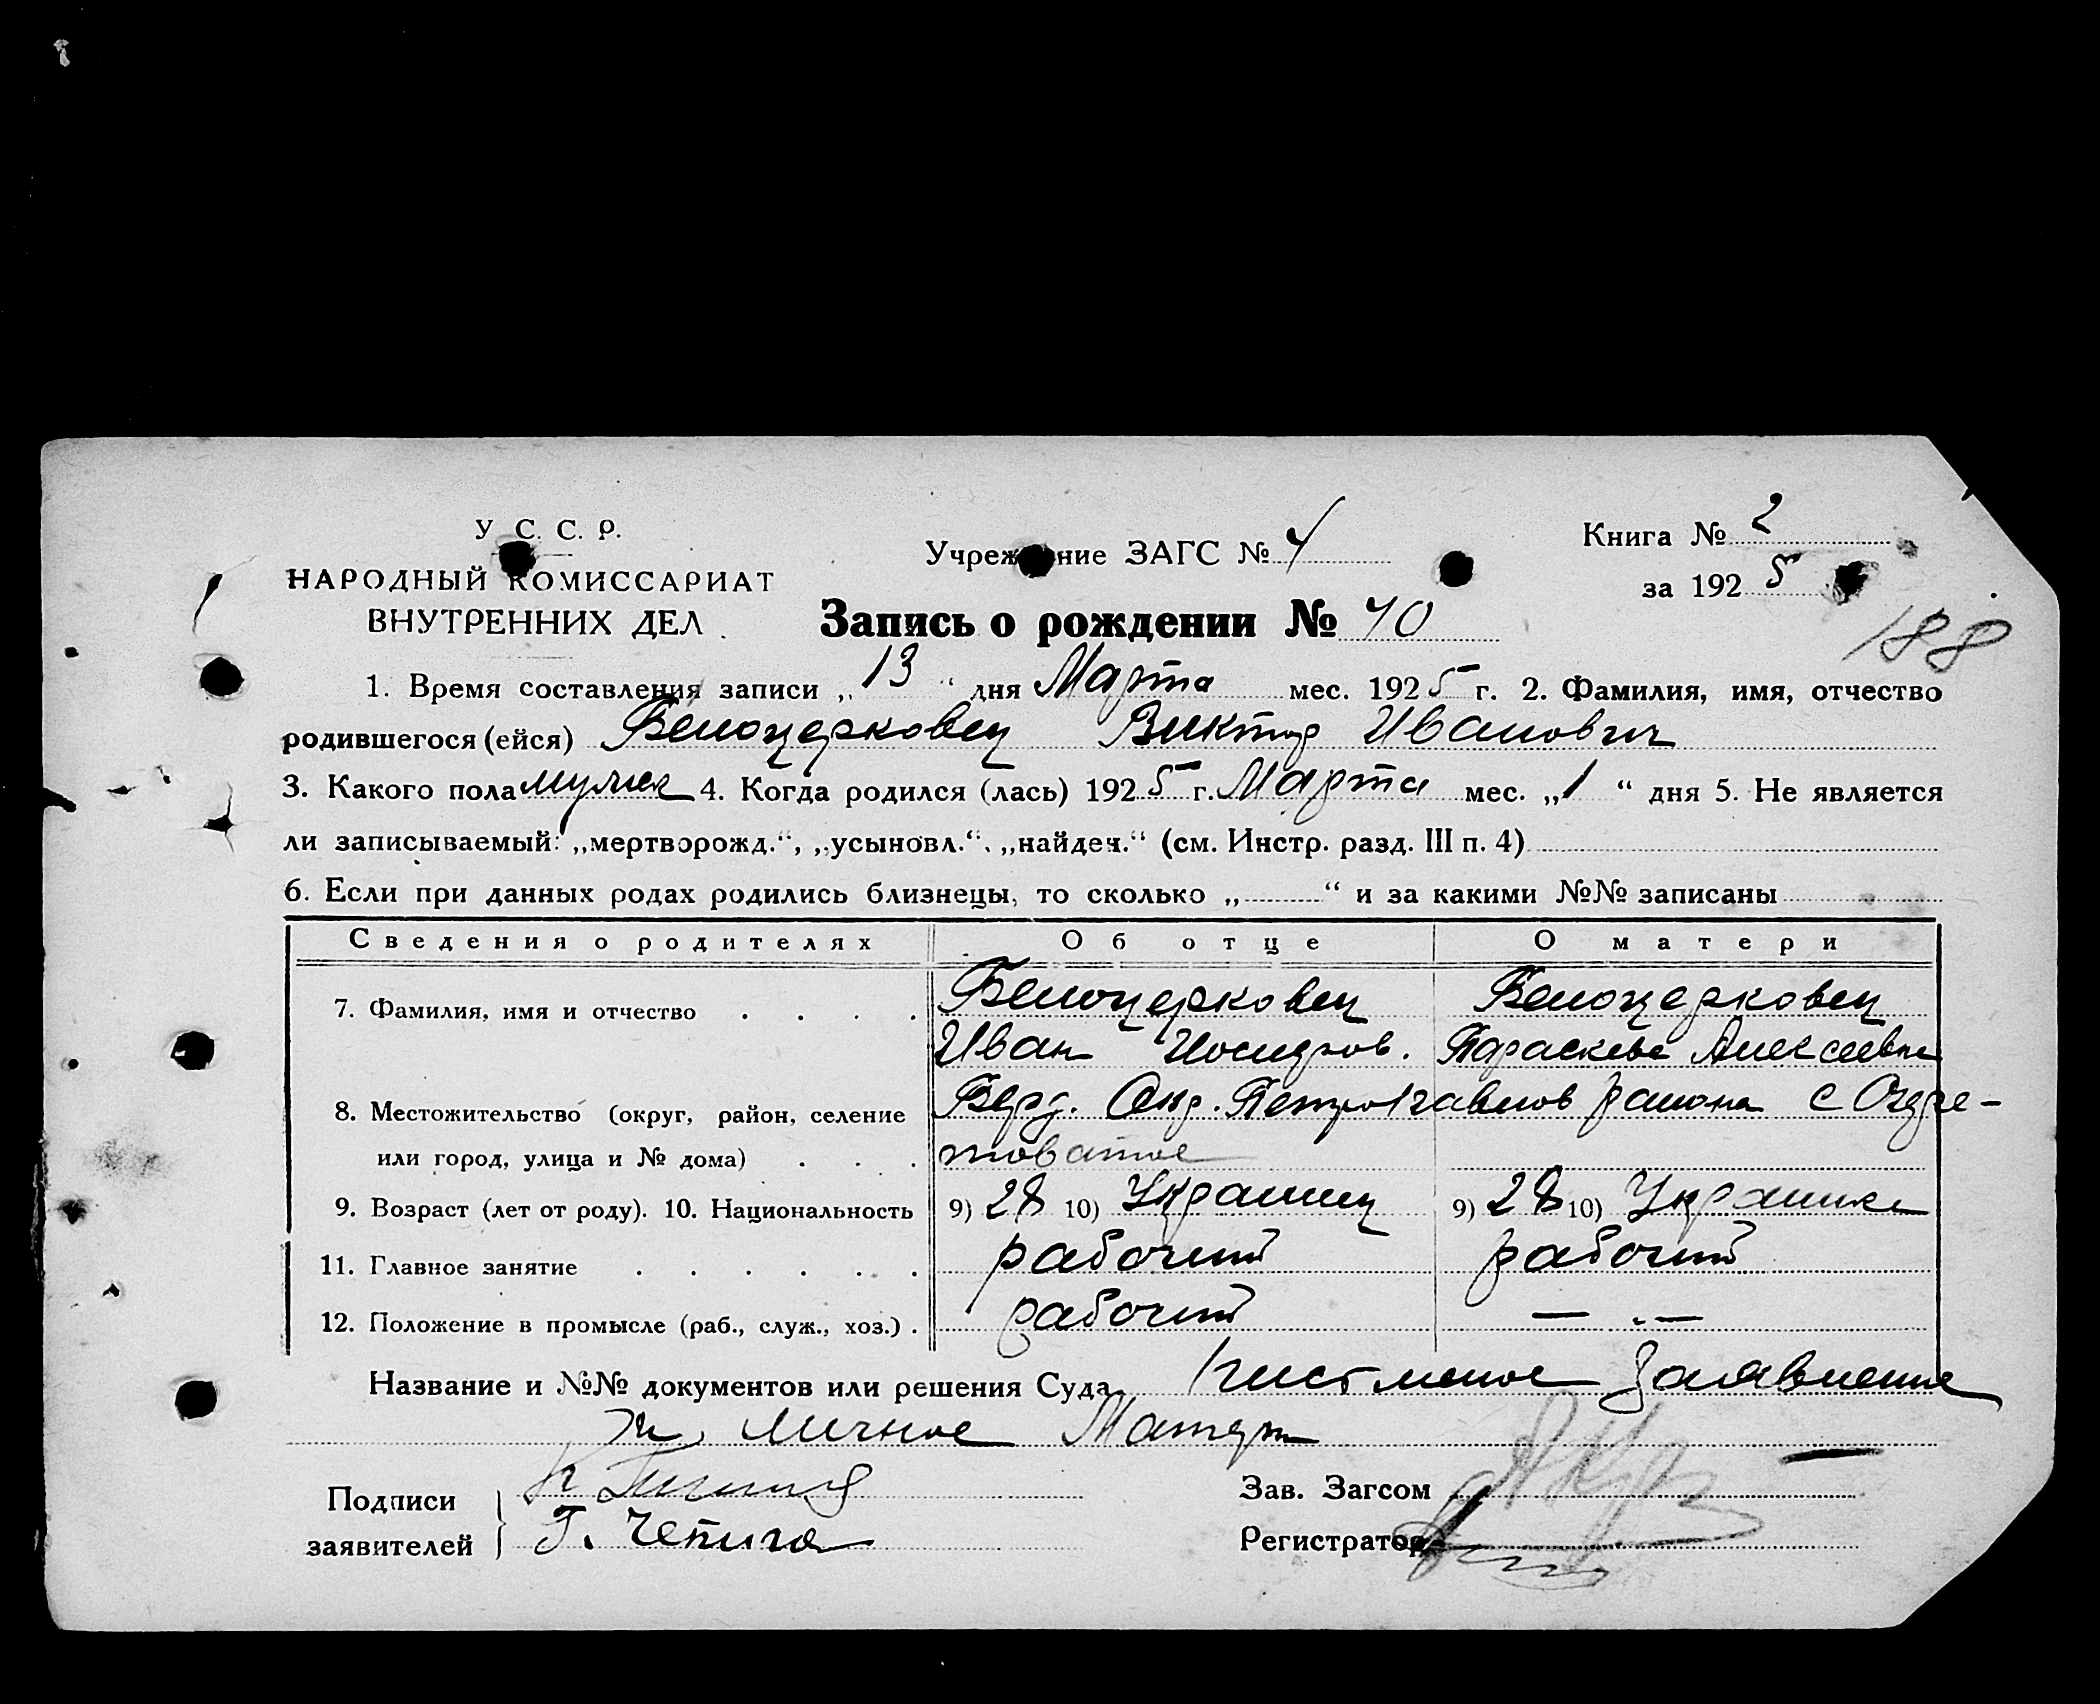 У. С. С. Р.
НАРОДНЫЙ КОМИССАРИАТ
ВНУТРЕННИХ ДЕЛ
Учреждение ЗАГС № 4
Книга № 2
за 1925
Запись о рождении № 40
188
1. Время составления записи „13“ дня Марта мес. 1925 г. 2. Фамилия, имя, отчество
родившегося (ейся) Белоцерковец Виктор Иванович
3. Какого пола мужск 4. Когда родился (лась) 1925 г. Марта мес. „1“ дня 5. Не является
ли записываемый: „мертворожд.“, „усыновл.“, „найден.“ (см. Инстр. разд. III п. 4)
6. Если при данных родах родились близнецы, то сколько „ “ и за какими №№ записаны
Сведения о родителях Об отце О матери
7. Фамилия, имя и отчество Белоцерковец Белоцерковец
Иван Иосифов. Параскева Алексеевна
8. Местожительство (округ, район, селение Берд. Окр. Петропавлов района с Очере-
или город, улица и № дома) товатое
9. Возраст (лет от роду). 10. Национальность 9) 28 10) Украинец 9) 28 10) Украинка
11. Главное занятие рабочий рабочий
12. Положение в промысле (раб., служ., хоз.) рабочий — „ —
Название и №№ документов или решения Суда письменное Заявление
и личное Матери
Подписи
заявителей
Г. Чепига
Зав. Загсом
Регистратор